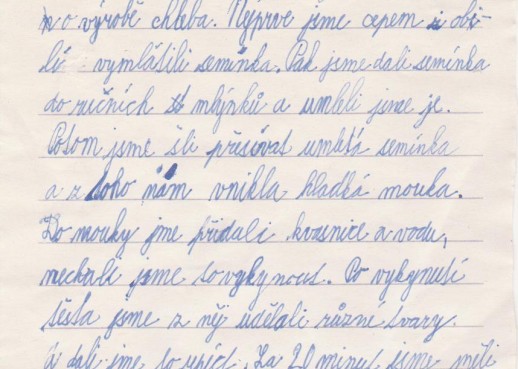 o výrobě chleba. Nýprve jme cepem z obi-
lí vymlátili semínka. Pak jsme dali semínka
do ručních mlýnků a umleli jsme je.
Potom jsme šli přesívat umletá semínka
a z toho nám vnikla hladká mouka.
Do mouky jme přidali kvasnice a vodu,
nechali jsme to vykynout. Po vykynutí
těsta jsme z něj udělali různé tvary.
A dali jme to upéct. Za 20 minut jsme měli